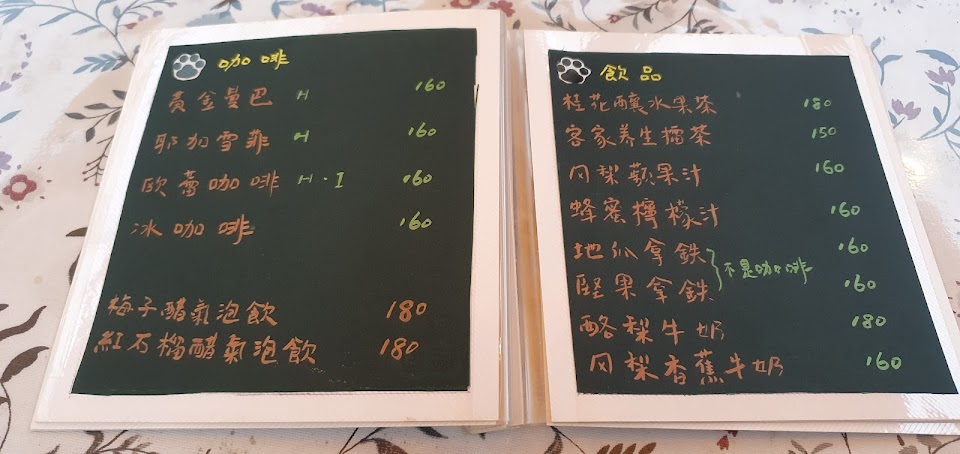 咖啡
黃金曼巴 H 160
耶加雪菲 H 160
歐蕾咖啡 H·I 160
冰咖啡 160
梅子醋氣泡飲 180
紅石榴醋氣泡飲 180
飲品
桂花釀水果茶 180
客家养生擂茶 150
冈梨蘋果汁 160
蜂蜜檸檬汁 160
地瓜拿鉄 160
不是咖啡
堅果拿鉄 160
酪梨牛奶 180
冈梨香蕉牛奶 160